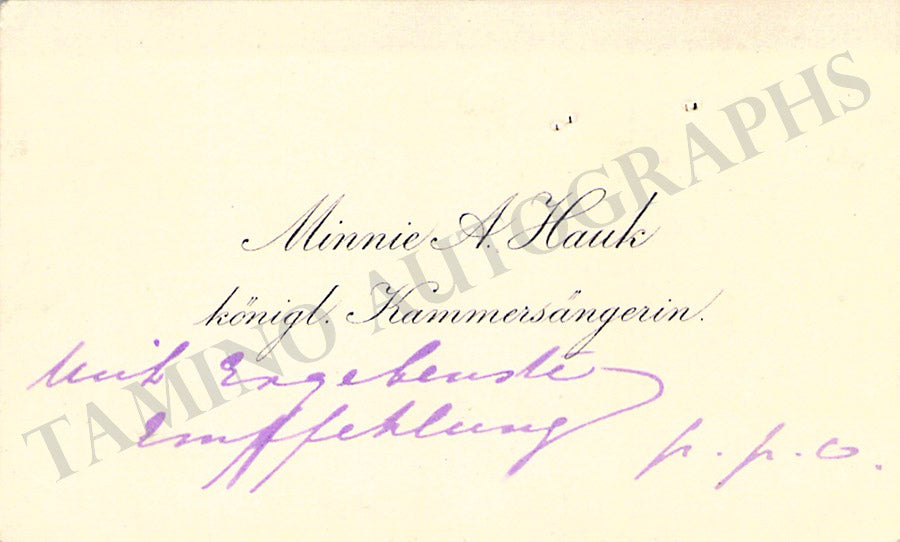 Minnie A. Hauk
königl. Kammersängerin.
Mit Ergebenste
Empffehlung p.p.c.
TAMINO AUTOGRAPHS